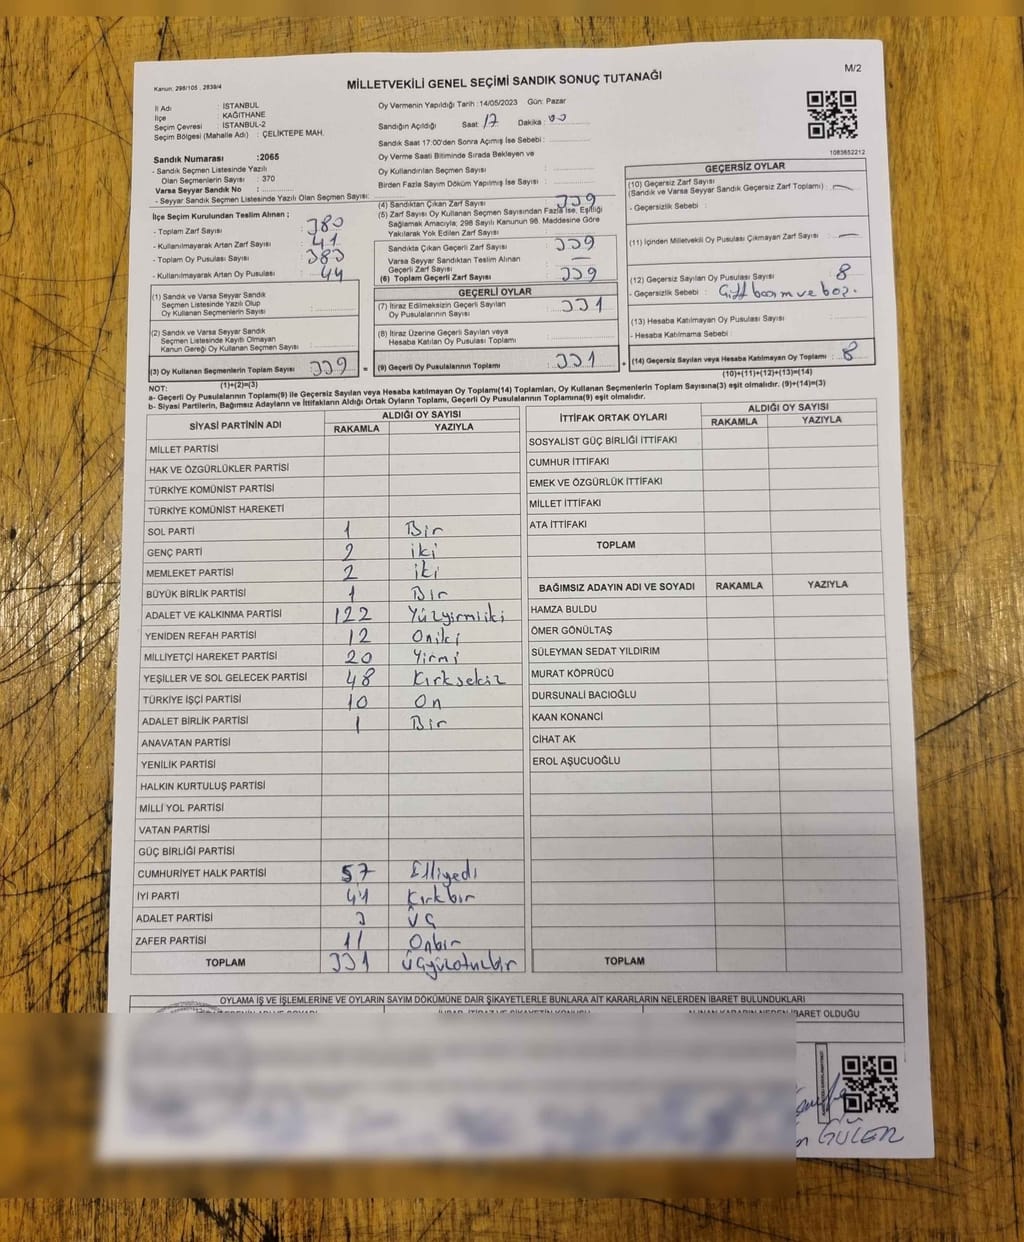 Kanun: 298/105 , 2839/4
MİLLETVEKİLİ GENEL SEÇİMİ SANDIK SONUÇ TUTANAĞI
M/2
İl Adı : İSTANBUL
İlçe : KAĞITHANE
Seçim Çevresi : İSTANBUL-2
Seçim Bölgesi (Mahalle Adı) : ÇELİKTEPE MAH.
Sandık Numarası :2065
- Sandık Seçmen Listesinde Yazılı
Olan Seçmenlerin Sayısı : 370
Varsa Seyyar Sandık No :
- Seyyar Sandık Seçmen Listesinde Yazılı Olan Seçmen Sayısı:
Oy Vermenin Yapıldığı Tarih :14/05/2023 Gün: Pazar
Sandığın Açıldığı Saat: 17 Dakika : 00
Sandık Saat 17:00'den Sonra Açımış İse Sebebi :
Oy Verme Saati Bitiminde Sırada Bekleyen ve
Oy Kullandırılan Seçmen Sayısı :
Birden Fazla Sayım Döküm Yapılmış İse Sayısı :
1083652212
İlçe Seçim Kurulundan Teslim Alınan ;
- Toplam Zarf Sayısı : 380
- Kullanılmayarak Artan Zarf Sayısı : 41
- Toplam Oy Pusulası Sayısı : 383
- Kullanılmayarak Artan Oy Pusulası : 44
(1) Sandık ve Varsa Seyyar Sandık
Seçmen Listesinde Yazılı Olup
Oy Kullanan Seçmenlerin Sayısı :
(2) Sandık ve Varsa Seyyar Sandık
Seçmen Listesinde Kayıtlı Olmayan
Kanun Gereği Oy Kullanan Seçmen Sayısı :
(3) Oy Kullanan Seçmenlerin Toplam Sayısı : 339 =
(1)+(2)=(3)
(4) Sandıktan Çıkan Zarf Sayısı : 339
(5) Zarf Sayısı Oy Kullanan Seçmen Sayısından Fazla İse, Eşitliği
Sağlamak Amacıyla; 298 Sayılı Kanunun 98. Maddesine Göre
Yakılarak Yok Edilen Zarf Sayısı :
Sandıkta Çıkan Geçerli Zarf Sayısı : 339
Varsa Seyyar Sandıktan Teslim Alınan
Geçerli Zarf Sayısı : —
(6) Toplam Geçerli Zarf Sayısı : 339
GEÇERLİ OYLAR
(7) İtiraz Edilmeksizin Geçerli Sayılan
Oy Pusulalarının Sayısı : 331
(8) İtiraz Üzerine Geçerli Sayılan veya
Hesaba Katılan Oy Pusulası Toplamı :
(9) Geçerli Oy Pusulalarının Toplamı : 331 +
GEÇERSİZ OYLAR
(10) Geçersiz Zarf Sayısı
(Sandık ve Varsa Seyyar Sandık Geçersiz Zarf Toplamı) : —
- Geçersizlik Sebebi :
(11) İçinden Milletvekili Oy Pusulası Çıkmayan Zarf Sayısı : —
(12) Geçersiz Sayılan Oy Pusulası Sayısı : 8
- Geçersizlik Sebebi : Çift basım ve boş.
(13) Hesaba Katılmayan Oy Pusulası Sayısı :
- Hesaba Katılmama Sebebi :
(14) Geçersiz Sayılan veya Hesaba Katılmayan Oy Toplamı : 8
(10)+(11)+(12)+(13)=(14)
NOT:
a- Geçerli Oy Pusulalarının Toplamı(9) ile Geçersiz Sayılan veya Hesaba katılmayan Oy Toplamı(14) Toplamları, Oy Kullanan Seçmenlerin Toplam Sayısına(3) eşit olmalıdır. (9)+(14)=(3)
b- Siyasi Partilerin, Bağımsız Adayların ve İttifakların Aldığı Ortak Oyların Toplamı, Geçerli Oy Pusulalarının Toplamına(9) eşit olmalıdır.
SİYASİ PARTİNİN ADI ALDIĞI OY SAYISI
RAKAMLA YAZIYLA
MİLLET PARTİSİ
HAK VE ÖZGÜRLÜKLER PARTİSİ
TÜRKİYE KOMÜNİST PARTİSİ
TÜRKİYE KOMÜNİST HAREKETİ
SOL PARTİ 1 Bir
GENÇ PARTİ 2 iki
MEMLEKET PARTİSİ 2 iki
BÜYÜK BİRLİK PARTİSİ 1 Bir
ADALET VE KALKINMA PARTİSİ 122 Yüzyirmiiki
YENİDEN REFAH PARTİSİ 12 Oniki
MİLLİYETÇİ HAREKET PARTİSİ 20 Yirmi
YEŞİLLER VE SOL GELECEK PARTİSİ 48 Kırksekiz
TÜRKİYE İŞÇİ PARTİSİ 10 On
ADALET BİRLİK PARTİSİ 1 Bir
ANAVATAN PARTİSİ
YENİLİK PARTİSİ
HALKIN KURTULUŞ PARTİSİ
MİLLİ YOL PARTİSİ
VATAN PARTİSİ
GÜÇ BİRLİĞİ PARTİSİ
CUMHURİYET HALK PARTİSİ 57 Elliyedi
İYİ PARTİ 41 Kırkbir
ADALET PARTİSİ 3 Üç
ZAFER PARTİSİ 11 Onbir
TOPLAM 331 Üçyüzotuzbir
İTTİFAK ORTAK OYLARI ALDIĞI OY SAYISI
RAKAMLA YAZIYLA
SOSYALİST GÜÇ BİRLİĞİ İTTİFAKI
CUMHUR İTTİFAKI
EMEK VE ÖZGÜRLÜK İTTİFAKI
MİLLET İTTİFAKI
ATA İTTİFAKI
TOPLAM
BAĞIMSIZ ADAYIN ADI VE SOYADI RAKAMLA YAZIYLA
HAMZA BULDU
ÖMER GÖNÜLTAŞ
SÜLEYMAN SEDAT YILDIRIM
MURAT KÖPRÜCÜ
DURSUNALİ BACIOĞLU
KAAN KONANCİ
CİHAT AK
EROL AŞUCUOĞLU
TOPLAM
OYLAMA İŞ VE İŞLEMLERİNE VE OYLARIN SAYIM DÖKÜMÜNE DAİR ŞİKAYETLERLE BUNLARA AİT KARARLARIN NELERDEN İBARET BULUNDUKLARI
İBARET OLDUĞU
GÜLER